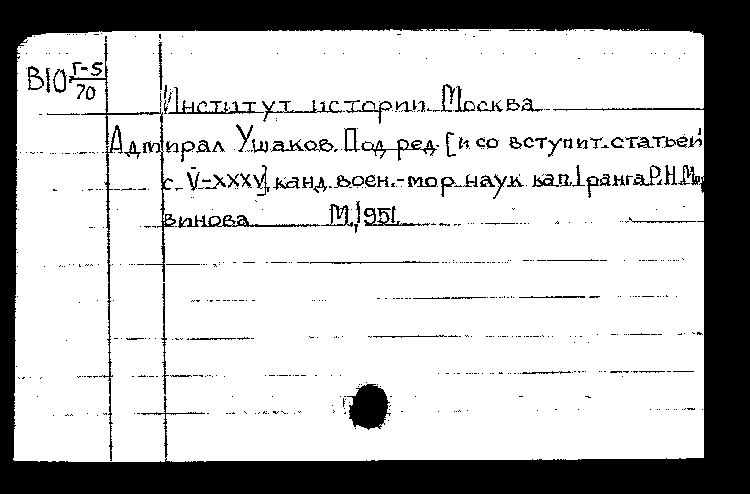 В10 Г-5/70
Институт истории. Москва
Адмирал Ушаков. Под ред. [и со вступит. статьей
с. V-XXXV] канд. воен.-мор. наук кап. 1 ранга Р.Н. Мор
винова. М., 1951.